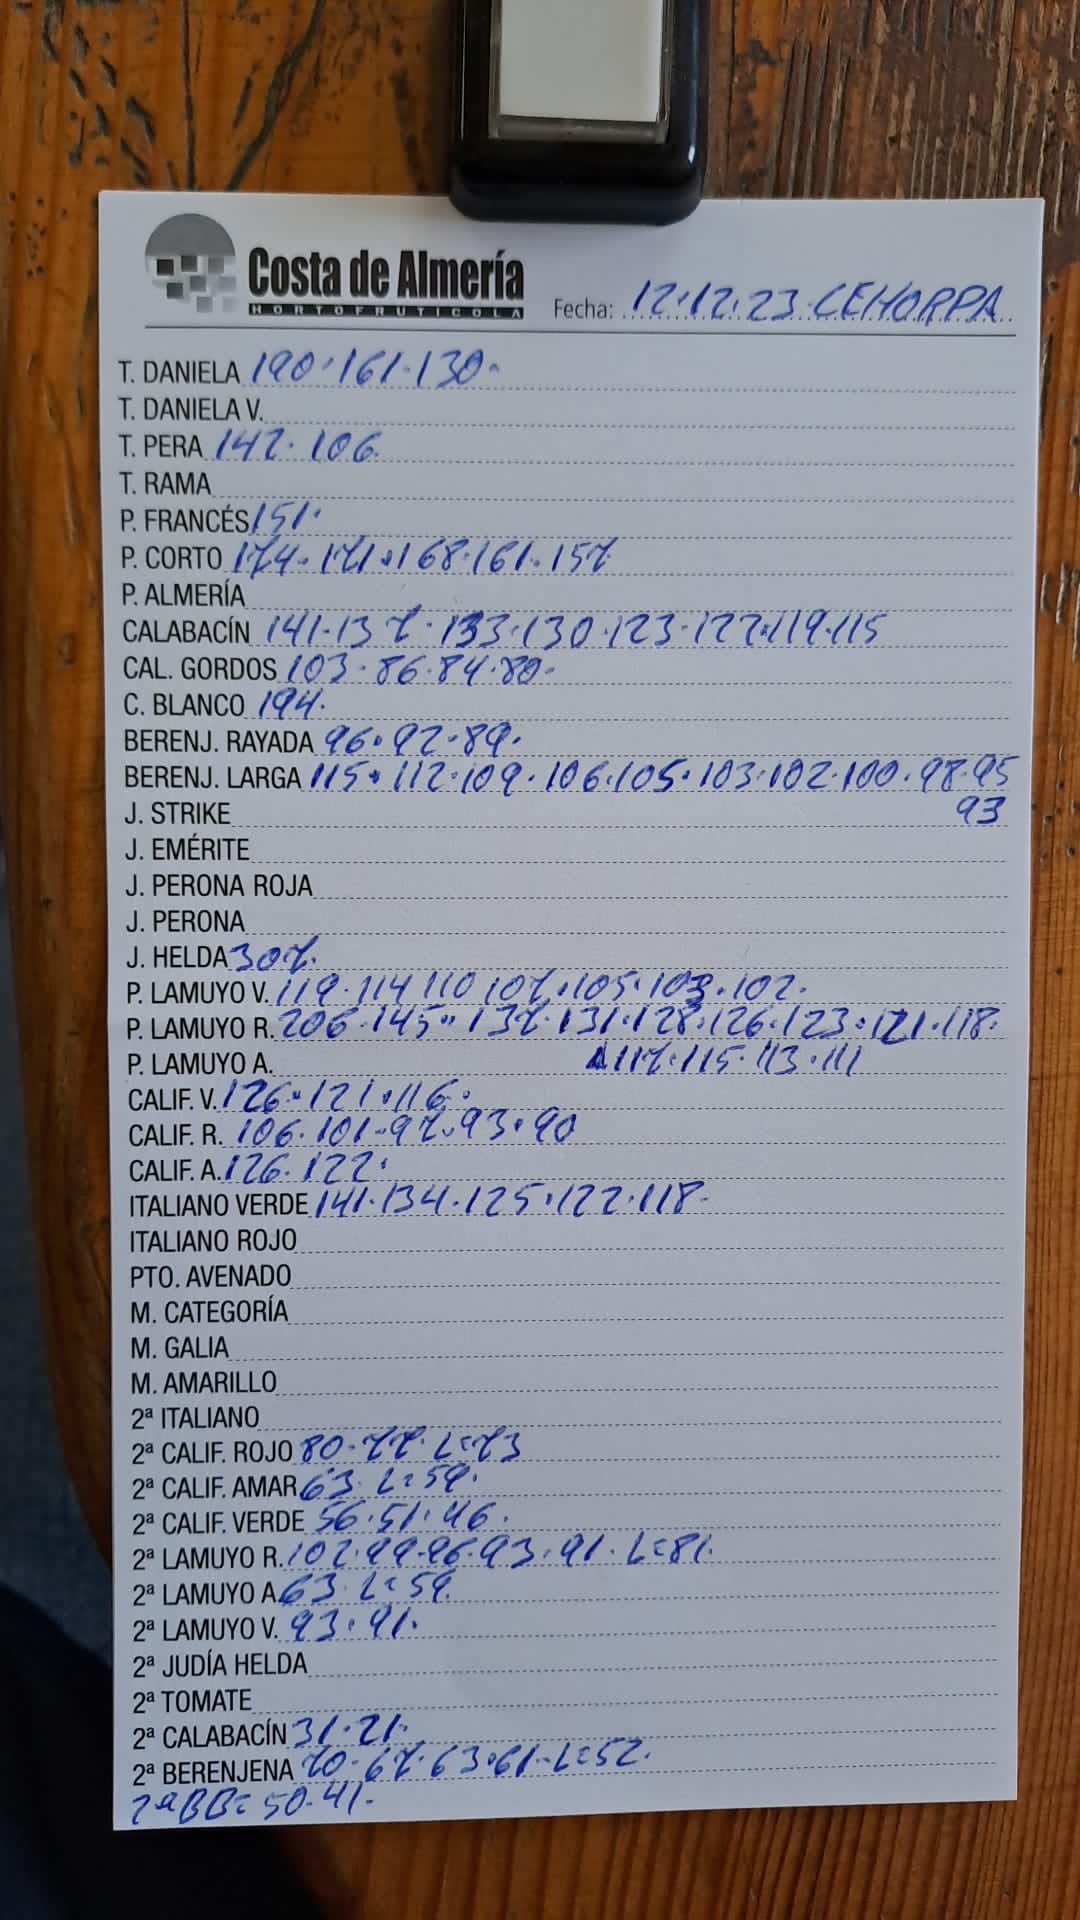 Costa de Almería
HORTOFRUTICOLA
Fecha: 12.12.23 CEHORPA
T. DANIELA 190.161.130.
T. DANIELA V.
T. PERA 142.106
T. RAMA
P. FRANCÉS 151.
P. CORTO 174.171.168.161.157
P. ALMERÍA
CALABACÍN 141.137.133.130.123.122.119.115
CAL. GORDOS 103.86.84.80.
C. BLANCO 194.
BERENJ. RAYADA 96.92.89.
BERENJ. LARGA 115.112.109.106.105.103.102.100.98.95
J. STRIKE 93
J. EMÉRITE
J. PERONA ROJA
J. PERONA
J. HELDA 307.
P. LAMUYO V. 119.114 110 107.105.103.102.
P. LAMUYO R. 206.145.137.131.128.126.123.121.118.
P. LAMUYO A. 117.115.113.111
CALIF. V. 126.121.116.
CALIF. R. 106.101.97.93.90
CALIF. A. 126.122.
ITALIANO VERDE 141.134.125.122.118.
ITALIANO ROJO
PTO. AVENADO
M. CATEGORÍA
M. GALIA
M. AMARILLO
2ª ITALIANO
2ª CALIF. ROJO 80.77.L=73
2ª CALIF. AMAR 63.L=59.
2ª CALIF. VERDE 56.51.46.
2ª LAMUYO R. 102.99.96.93.91.L=81.
2ª LAMUYO A. 63.L=59.
2ª LAMUYO V. 93.91.
2ª JUDÍA HELDA
2ª TOMATE
2ª CALABACÍN 31.21.
2ª BERENJENA 70.67.63.61.L=52.
2ªBB=50.41.